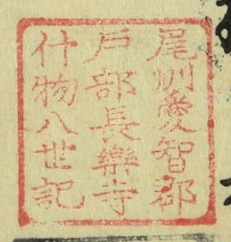 尾州愛智郡
戸部長樂寺
什物八世記